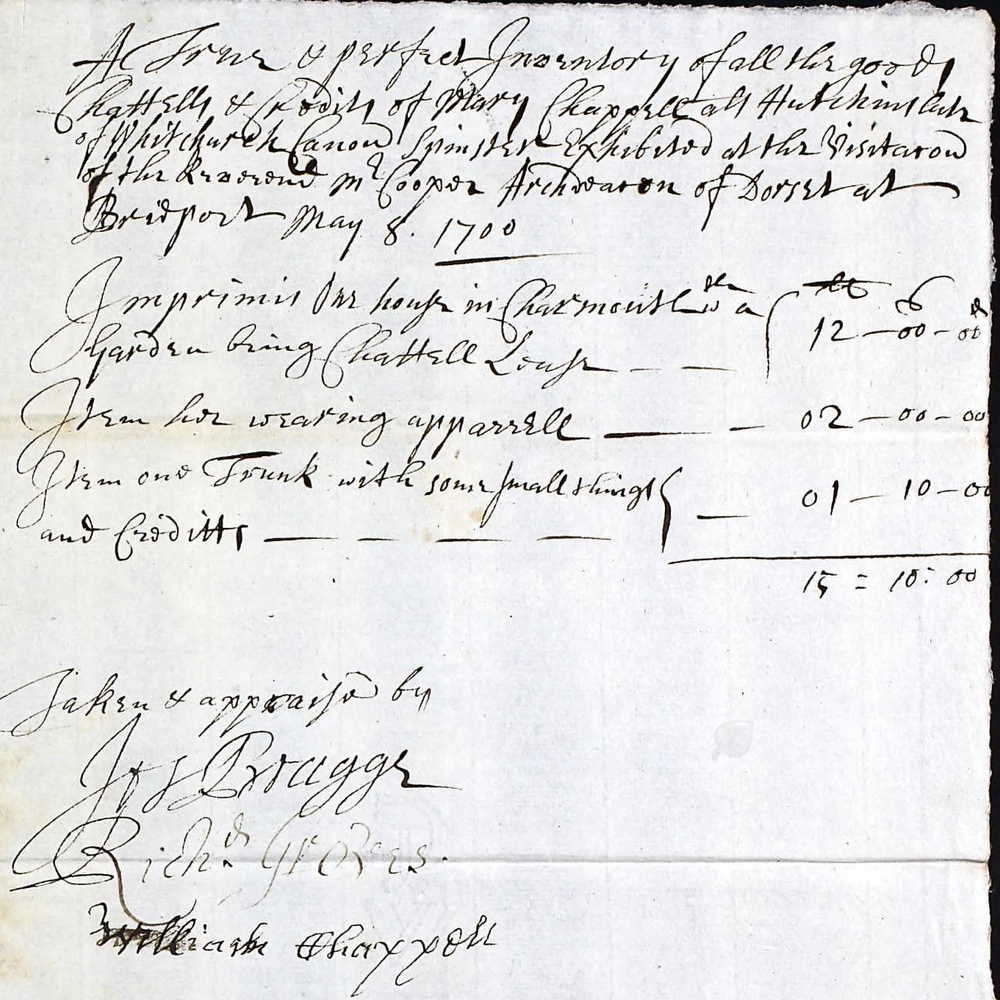 A True & perfect Inventory of all the goods
Chattells & Credits of Mary Chappell als Hutchins late
of Whitchurch Canon Spinster Exhibited at the Visitacon
of the Reverend Mr Cooper Archdeacon of Dorset at
Bridport May 8. 1700
Imprimis One house in Charmouth wth a
Garden being Chattell Lease — — 12 — 00 — 00
Item her wearing apparrell — — 02 — 00 — 00
Item one Trunk with some small things
and Creditts — — — — 01 — 10 — 00
15 = 10: 00
Taken & appraisd by
Jos Bragge
Richd. Groves.
William Chappell